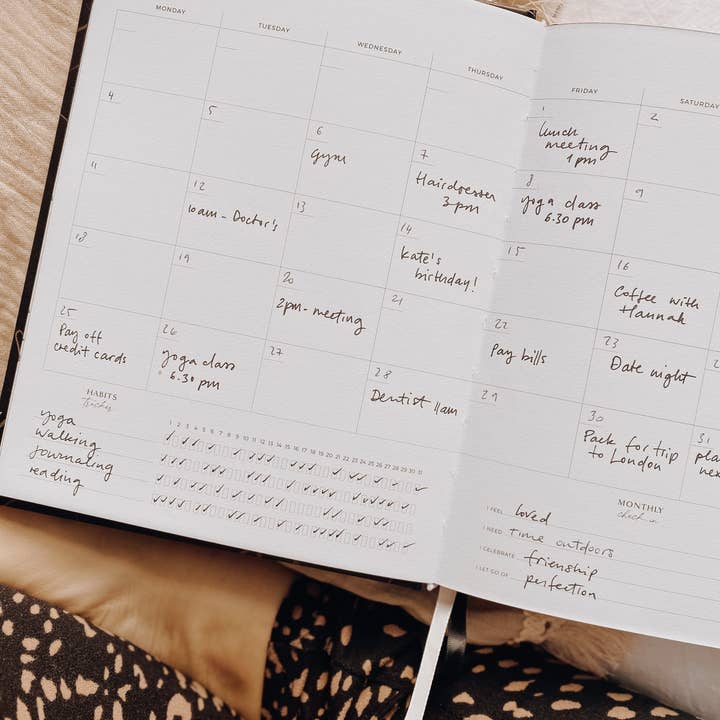 MONDAY
TUESDAY
WEDNESDAY
THURSDAY
FRIDAY
SATURDAY
1
lunch
meeting
1pm
2
4
5
6
Gym
7
Hairdresser
3pm
8
yoga class
6.30pm
9
11
12
10am - Doctor's
13
14
Kate's
birthday!
15
16
Coffee with
Hannah
18
19
20
2pm - meeting
21
22
Pay bills
23
Date night
25
Pay off
credit cards
26
yoga class
6.30 pm
27
28
Dentist 11am
29
30
Pack for trip
to London
31
HABITS
tracker
1 2 3 4 5 6 7 8 9 10 11 12 13 14 15 16 17 18 19 20 21 22 23 24 25 26 27 28 29 30 31
yoga
walking
journaling
reading
MONTHLY
check in
I FEEL loved
I NEED time outdoors
I CELEBRATE frienship
I LET GO OF perfection